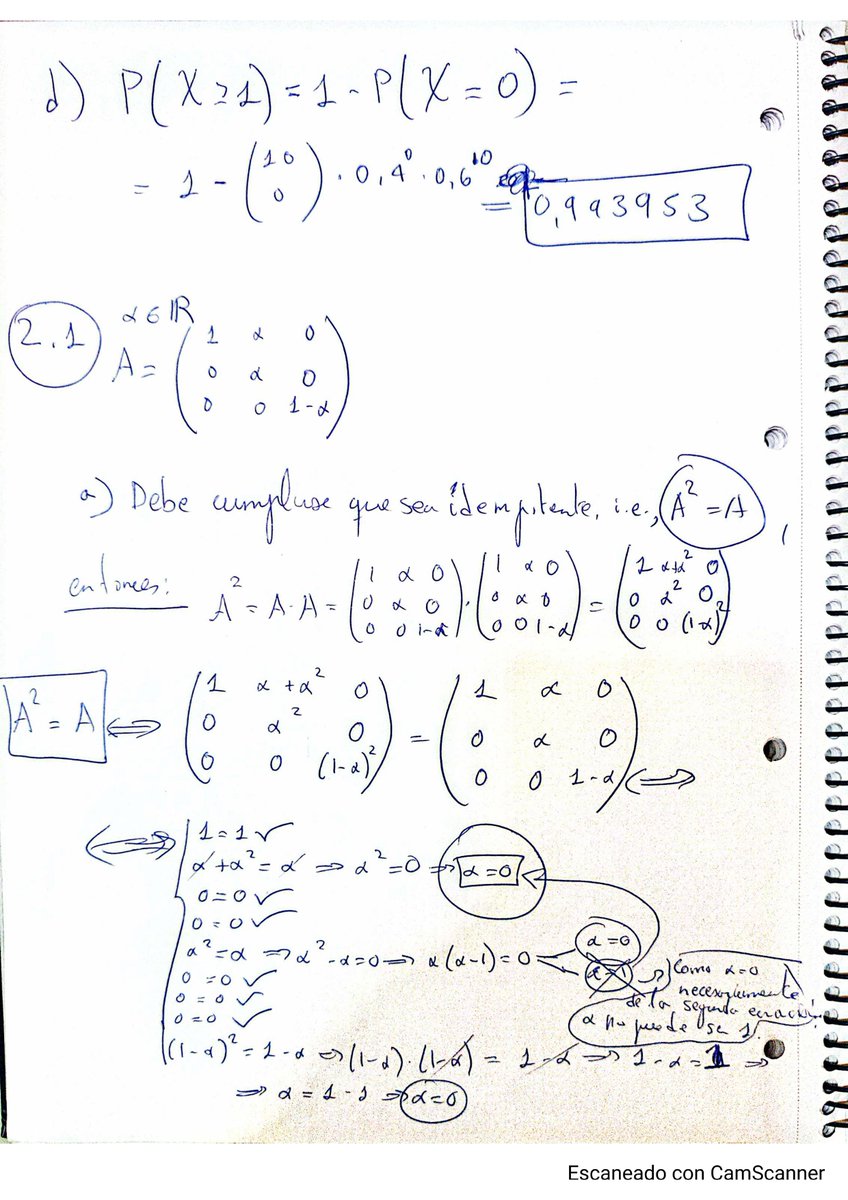 d) P(X ≥ 1) = 1 - P(X = 0) =
= 1 - (10 0) · 0,4^0 · 0,6^10 = 0,993953
2.1 α ∈ ℝ
A = (1 α 0
0 α 0
0 0 1-α)
a) Debe cumplirse que sea idempotente, i.e., A² = A,
entonces: A² = A·A = (1 α 0 / 0 α 0 / 0 0 1-α) · (1 α 0 / 0 α 0 / 0 0 1-α) = (1 α+α² 0 / 0 α² 0 / 0 0 (1-α)²)
A² = A ⟺ (1 α+α² 0 / 0 α² 0 / 0 0 (1-α)²) = (1 α 0 / 0 α 0 / 0 0 1-α) ⟺
⟺ 1 = 1 ✓
α + α² = α ⇒ α² = 0 ⇒ α = 0
0 = 0 ✓
0 = 0 ✓
α² = α ⇒ α² - α = 0 ⇒ α(α-1) = 0 α = 0
α = 1 → Como α = 0
necesariamente
de la segunda ecuación,
α no puede ser 1.
0 = 0 ✓
0 = 0 ✓
0 = 0 ✓
(1-α)² = 1-α ⇒ (1-α)·(1-α) = 1-α ⇒ 1-α = 1 ⇒
⇒ α = 1 - 1 ⇒ α = 0
Escaneado con CamScanner